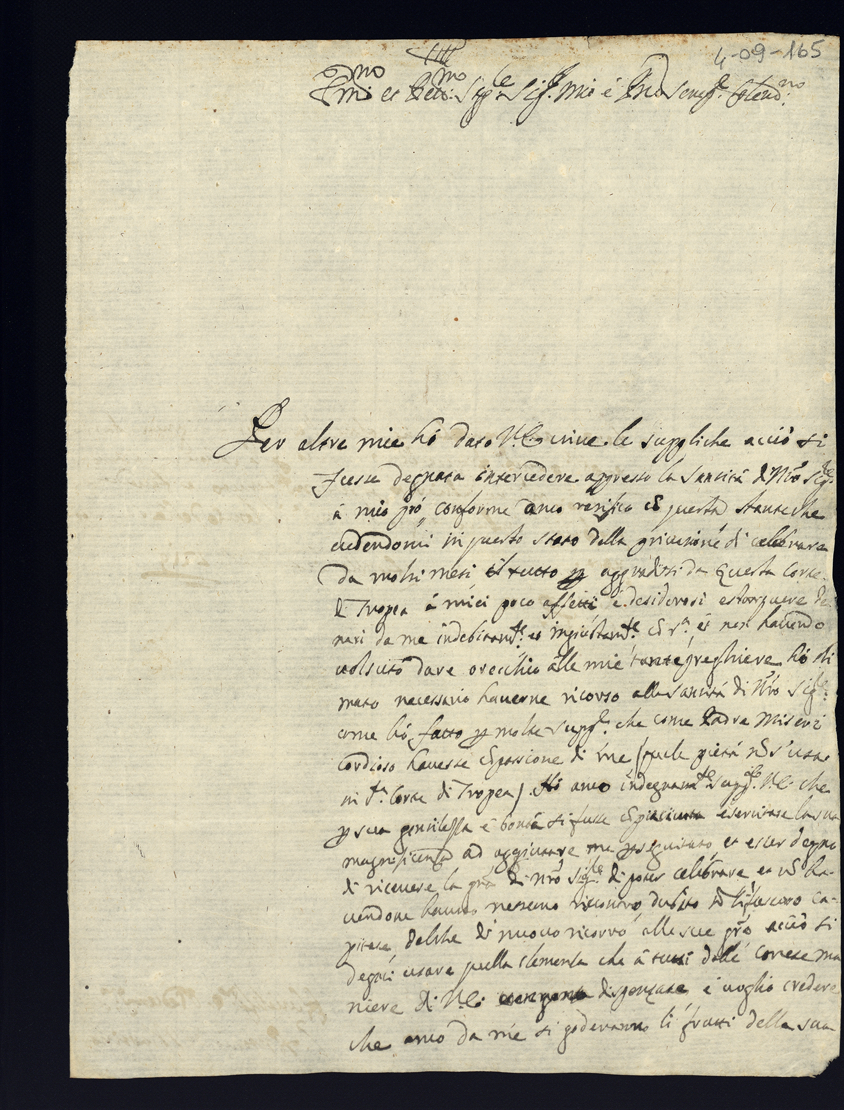 4-09-165
Em.mo et Sig.re Sig.r mio e
Per altre mie hó dato V.E. vive le suppliche acciò si
fosse degnata intercedere appresso la Santità di N.ro Sig.re
à mio prò, conforme anco con questa stante che
vedendomi in questo stato della privatione di celebrare
da molti mesi il tutto da questa Corte
di Tropea à miei poco affetti, e desiderosi estorquere de
nari da me indebitam.te et ingiustam.te et non havendo
voluto dare orecchio alle mie tante preghiere hó sti
mato necessario haverne ricorso alla Santità di N.ro Sig.re
come hó fatto molte supp.e che come Padre Miseri
cordioso havesse di me (quale pietà nõ s'usa
in Corte di Tropea) Hó anco indegnam.te V.E. che
sua gentilezza e bontà si fusse esercitare la sua
magnificenza ad aggiutare me perseguitato, et esser degno
di ricevere la gr̃a di N.ro Sig.re di poter celebrare et nõ ha-
vendone havuto nessuno riscontro dubito nõ li fussero ca-
pitate, di nuovo ricorro alle sue acciò si
degni usare quella clemenza che à tutti dalle cortese ma
niere di V.E. dispenzare e voglio credere
che anco da me si goderanno li frutti della sua